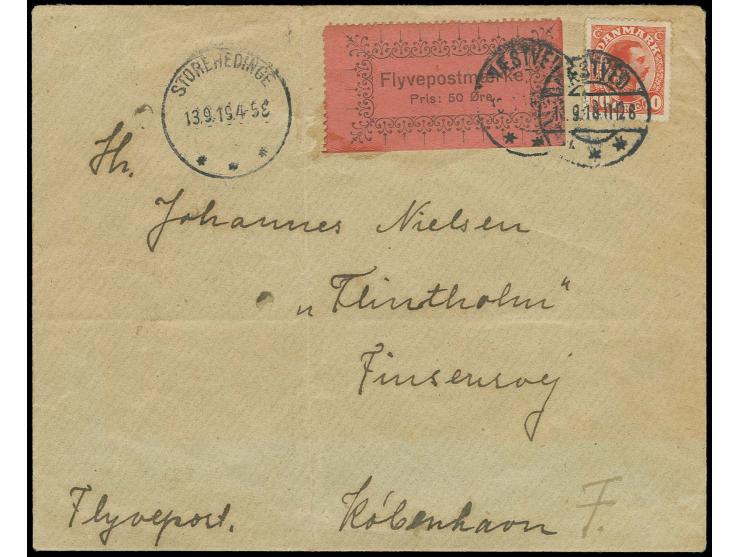 STOREHEDINGE
13.9.19.4-5E
Flyvepostmærke
Pris: 50 Øre.
NÆSTVED
NÆSTVED
DANMARK
Hr.
Johannes Nielsen
„Flintholm“
Finsensvej
Flyvepost.
København F.